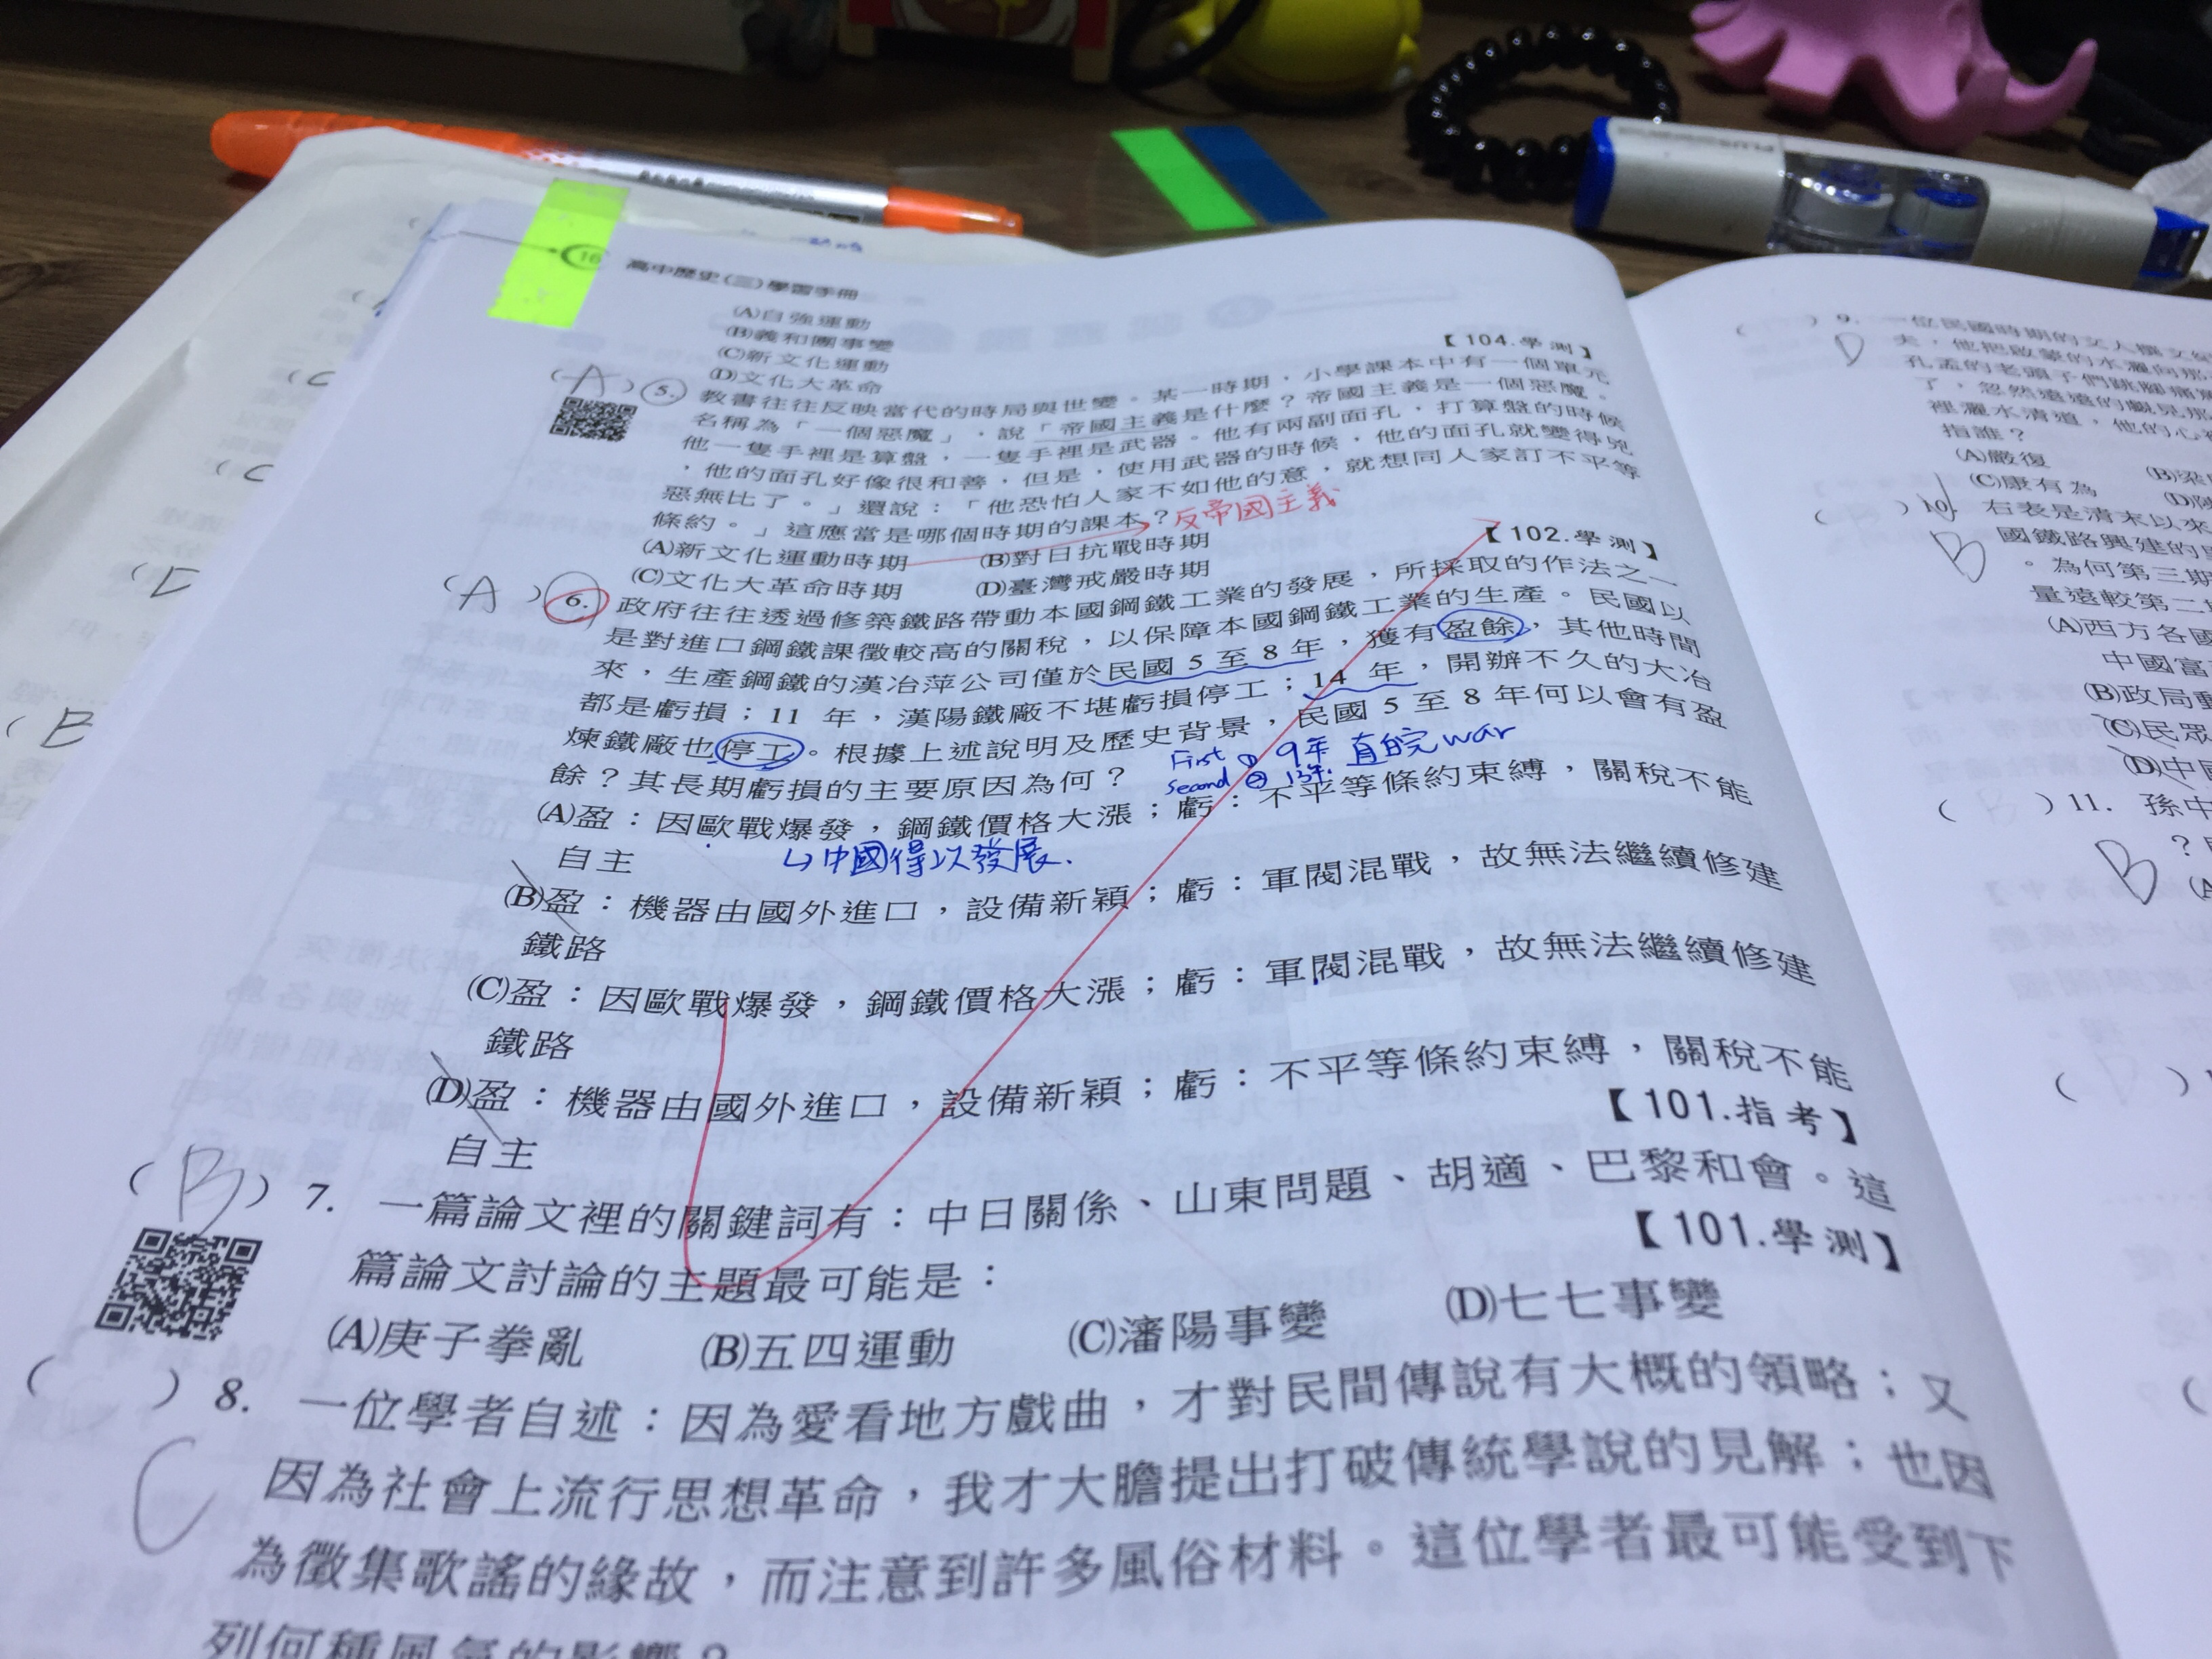 16 高中歷史(三)學習手冊
(A)自強運動
(B)義和團事變
(C)新文化運動
(D)文化大革命
【104.學測】
(A) 5. 教書往往反映當代的時局與世變。某一時期，小學課本中有一個單元
名稱為「一個惡魔」，說「帝國主義是什麼？帝國主義是一個惡魔。
他一隻手裡是算盤，一隻手裡是武器。他有兩副面孔，打算盤的時候
，他的面孔好像很和善，但是，使用武器的時候，他的面孔就變得兇
惡無比了。」還說：「他恐怕人家不如他的意，就想同人家訂不平等
條約。」這應當是哪個時期的課本？
反帝國主義
(A)新文化運動時期 (B)對日抗戰時期
(C)文化大革命時期 (D)臺灣戒嚴時期
【102.學測】
(A) 6. 政府往往透過修築鐵路帶動本國鋼鐵工業的發展，所採取的作法之一
是對進口鋼鐵課徵較高的關稅，以保障本國鋼鐵工業的生產。民國以
來，生產鋼鐵的漢冶萍公司僅於民國 5 至 8 年，獲有盈餘，其他時間
都是虧損；11 年，漢陽鐵廠不堪虧損停工；14 年，開辦不久的大冶
煉鐵廠也停工。根據上述說明及歷史背景，民國 5 至 8 年何以會有盈
餘？其長期虧損的主要原因為何？
First ① 9年 直皖 war
second ② 13年
(A)盈：因歐戰爆發，鋼鐵價格大漲；虧：不平等條約束縛，關稅不能
自主
↳中國得以發展.
(B)盈：機器由國外進口，設備新穎；虧：軍閥混戰，故無法繼續修建
鐵路
(C)盈：因歐戰爆發，鋼鐵價格大漲；虧：軍閥混戰，故無法繼續修建
鐵路
(D)盈：機器由國外進口，設備新穎；虧：不平等條約束縛，關稅不能
自主
【101.指考】
(B) 7. 一篇論文裡的關鍵詞有：中日關係、山東問題、胡適、巴黎和會。這
篇論文討論的主題最可能是：
【101.學測】
(A)庚子拳亂 (B)五四運動 (C)瀋陽事變 (D)七七事變
( ) 8. 一位學者自述：因為愛看地方戲曲，才對民間傳說有大概的領略；又
C
因為社會上流行思想革命，我才大膽提出打破傳統學說的見解；也因
為徵集歌謠的緣故，而注意到許多風俗材料。這位學者最可能受到下
列何種風氣的影響？
( ) 9. 一位民國時期的文人撰文
D
夫，他把啟蒙的水灑向那
孔孟的老頭子們跳腳痛
了，忽然遠遠的覷見那
裡灑水清道，他的心
指誰？
(A)嚴復 (B)梁
(C)康有為 (D)
( ) 10. 右表是清末以來
B
國鐵路興建的
。為何第三期
量遠較第二
(A)西方各國
中國富
(B)政局動
(C)民眾
(D)中國
( ) 11. 孫中
B
？
(A